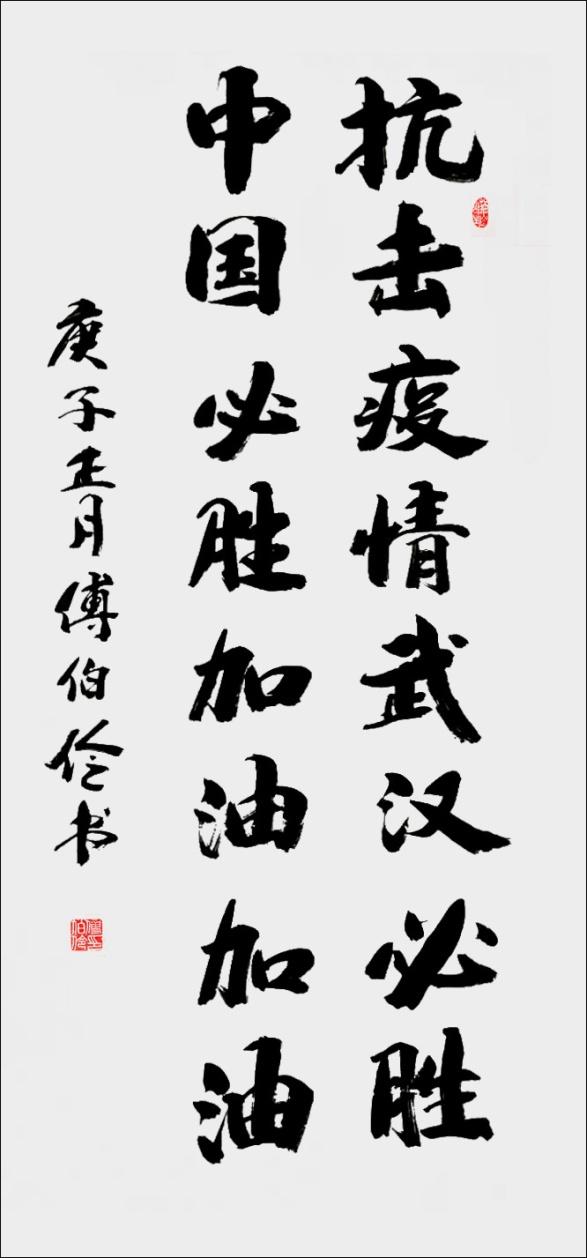 抗击疫情武汉必胜
中国必胜加油加油
庚子正月傅伯伦书